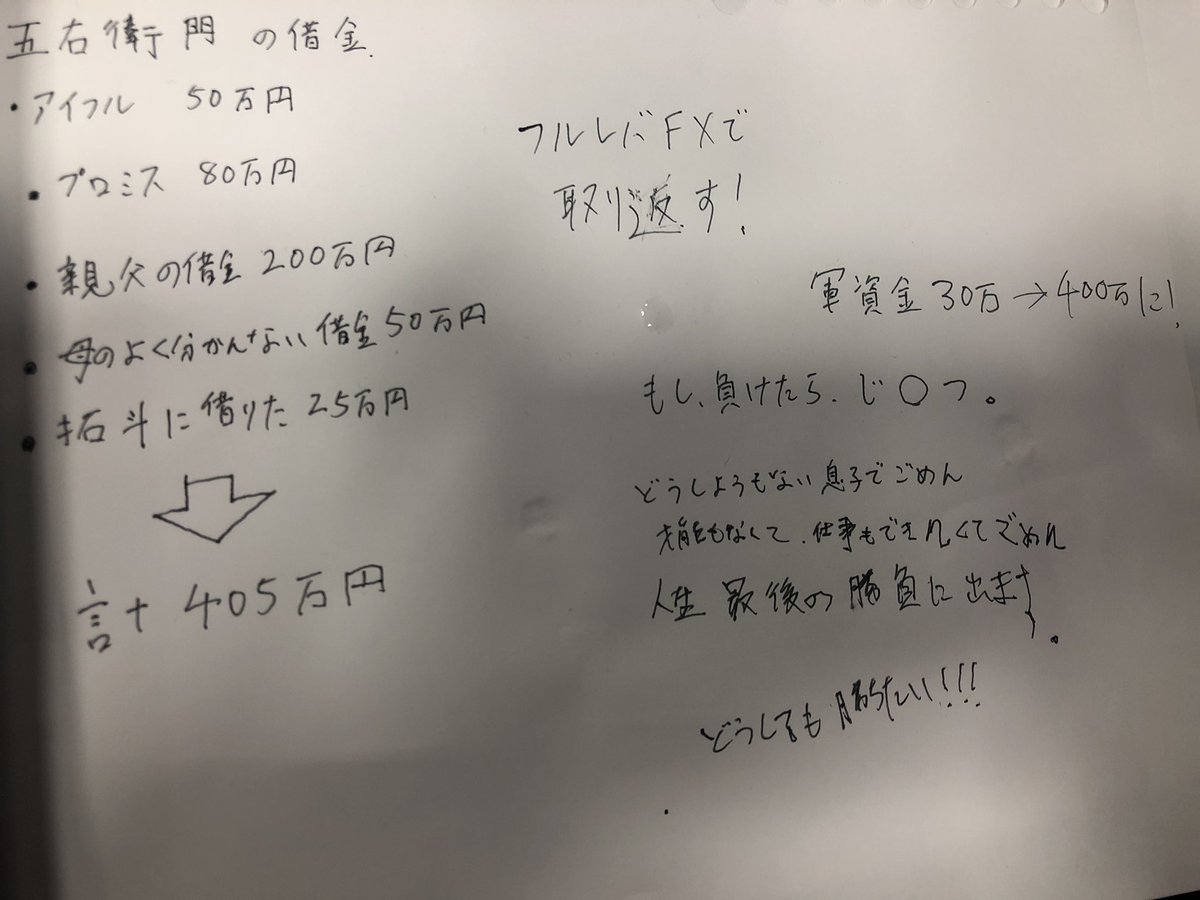 五右衛門の借金.
・アイフル 50万円
・プロミス 80万円
・親父の借金 200万円
・母のよく分かんない借金50万円
・拓斗に借りた 25万円
計 405万円
フルレバFXで
取り返す!
軍資金30万→400万に!
もし、負けたら、じ〇つ。
どうしようもない息子でごめん
才能もなくて、仕事もできなくてごめん
人生最後の勝負に出ます。
どうしても勝ちたい!!!